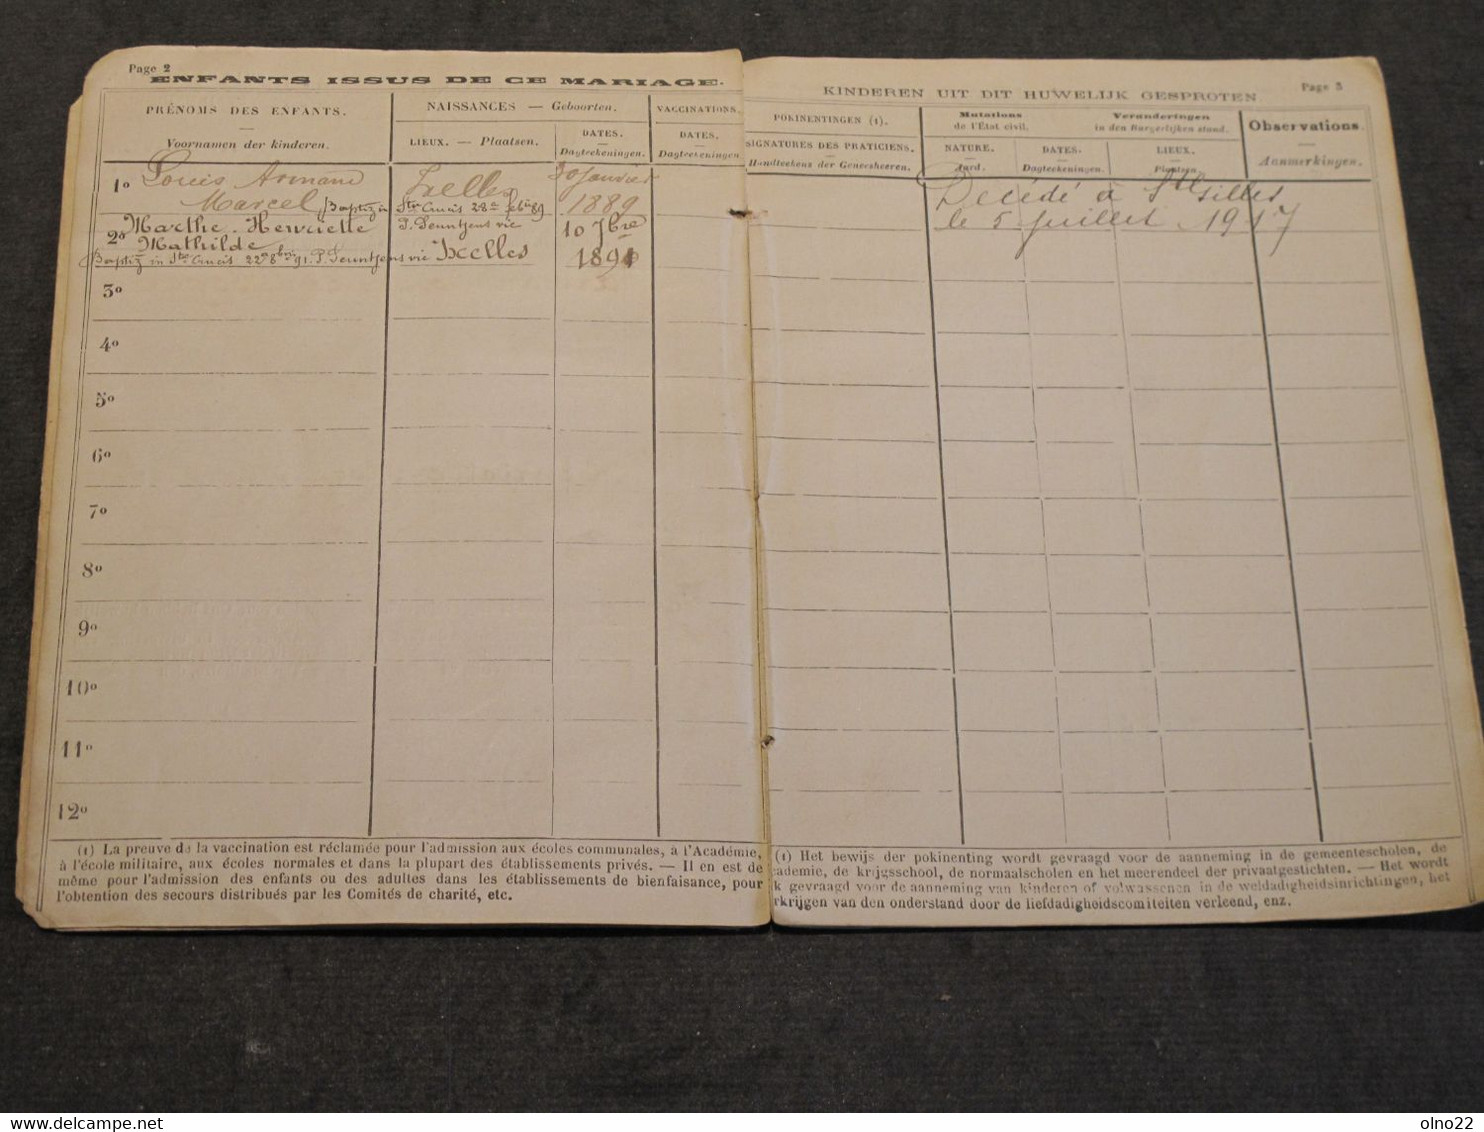 Page 2
ENFANTS ISSUS DE CE MARIAGE.
PRÉNOMS DES ENFANTS.
Voornamen der kinderen.
NAISSANCES — Geboorten.
LIEUX. — Plaatsen.
DATES.
Dagteekeningen.
VACCINATIONS.
DATES.
Dagteekeningen
1º Louis Armand Ixelles 30 Janvier
Marcel Baptiz in Ste Crucis 28a feb 89 1889
2º Marthe Henriette vic 10 7bre
Mathilde Ixelles 1891
Baptiz in Ste Crucis 22a 8bris 91. vic
3º
4º
5º
6º
7º
8º
9º
10º
11º
12º
(1) La preuve de la vaccination est réclamée pour l'admission aux écoles communales, à l'Académie,
à l'école militaire, aux écoles normales et dans la plupart des établissements privés. — Il en est de
même pour l'admission des enfants ou des adultes dans les établissements de bienfaisance, pour
l'obtention des secours distribués par les Comités de charité, etc.
KINDEREN UIT DIT HUWELIJK GESPROTEN
Page 3
POKINENTINGEN (1).
SIGNATURES DES PRATICIENS.
Handteekens der Geneesheeren.
Mutations
de l'État civil.
Veranderingen
in den Burgerlijken stand.
NATURE.
Aard.
DATES.
Dagteekeningen.
LIEUX.
Plaatsen.
Observations.
Aanmerkingen.
Décédé à St Gilles
le 5 Juillet 1917
(1) Het bewijs der pokinenting wordt gevraagd voor de aanneming in de gemeentescholen, de
cademie, de krijgsschool, de normaalscholen en het meerendeel der privaatgestichten. — Het wordt
k gevraagd voor de aanneming van kinderen of volwassenen in de weldadigheidsinrichtingen, het
rkrijgen van den onderstand door de liefdadigheidscomiteiten verleend, enz.
www.delcampe.net
olno22